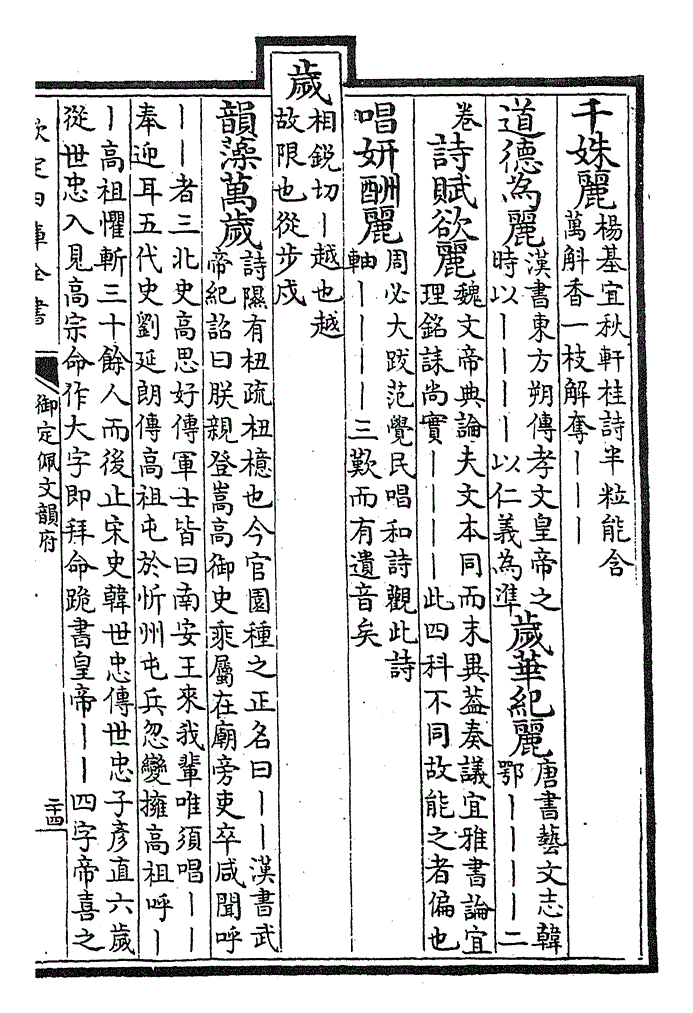 千姝麗楊基宜秋軒桂詩半粒能含
萬斛香一枝解奪丨丨丨
道德為麗漢書東方朔傳孝文皇帝之
時以丨丨丨丨以仁義為準
歲華紀麗唐書藝文志韓
鄂丨丨丨丨二
卷
詩賦欲麗魏文帝典論夫文本同而末異葢奏議宜雅書論宜
理銘誄尚實丨丨丨丨此四科不同故能之者偏也
唱妍酬麗周必大跋范覺民唱和詩觀此詩
軸丨丨丨丨三歎而有遺音矣
歲相銳切丨越也越
故限也從步戍
韻藻萬歲詩隰有杻疏杻檍也今官園種之正名曰丨丨漢書武
帝紀詔曰朕親登嵩高御史乘屬在廟旁吏卒咸聞呼
丨丨者三北史高思好傳軍士皆曰南安王來我輩唯須唱丨丨
奉迎耳五代史劉延朗傳高祖屯於忻州屯兵忽變擁高祖呼丨
丨高祖懼斬三十餘人而後止宋史韓世忠傳世忠子彥直六歲
從世忠入見高宗命作大字即拜命跪書皇帝丨丨四字帝喜之
欽定四庫全書
御定佩文韻府
二十四